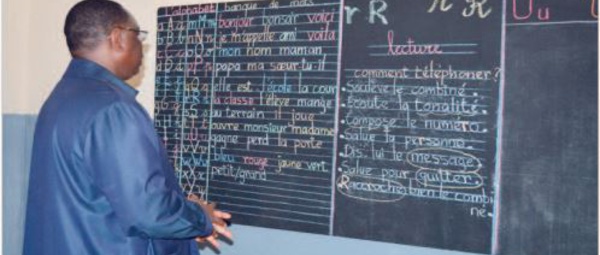 l'alphabet banque de mots
bonjour bonsoir voici
je m'appelle ami voilà
mon nom maman
papa ma sœur tu il
elle est l'école la cour
la classe l'élève mange
au terrain il joue
ouvre monsieur madame
gagne perd la porte
bleu rouge jaune vert
petit/grand
r R
lecture
comment téléphoner?
.Soulève le combiné.
.Ecoute la tonalité.
.Compose le numéro.
.Salue la personne.
.Dis-lui le message
.Salue pour quitter.
.Raccroche bien le combi
né.
U u